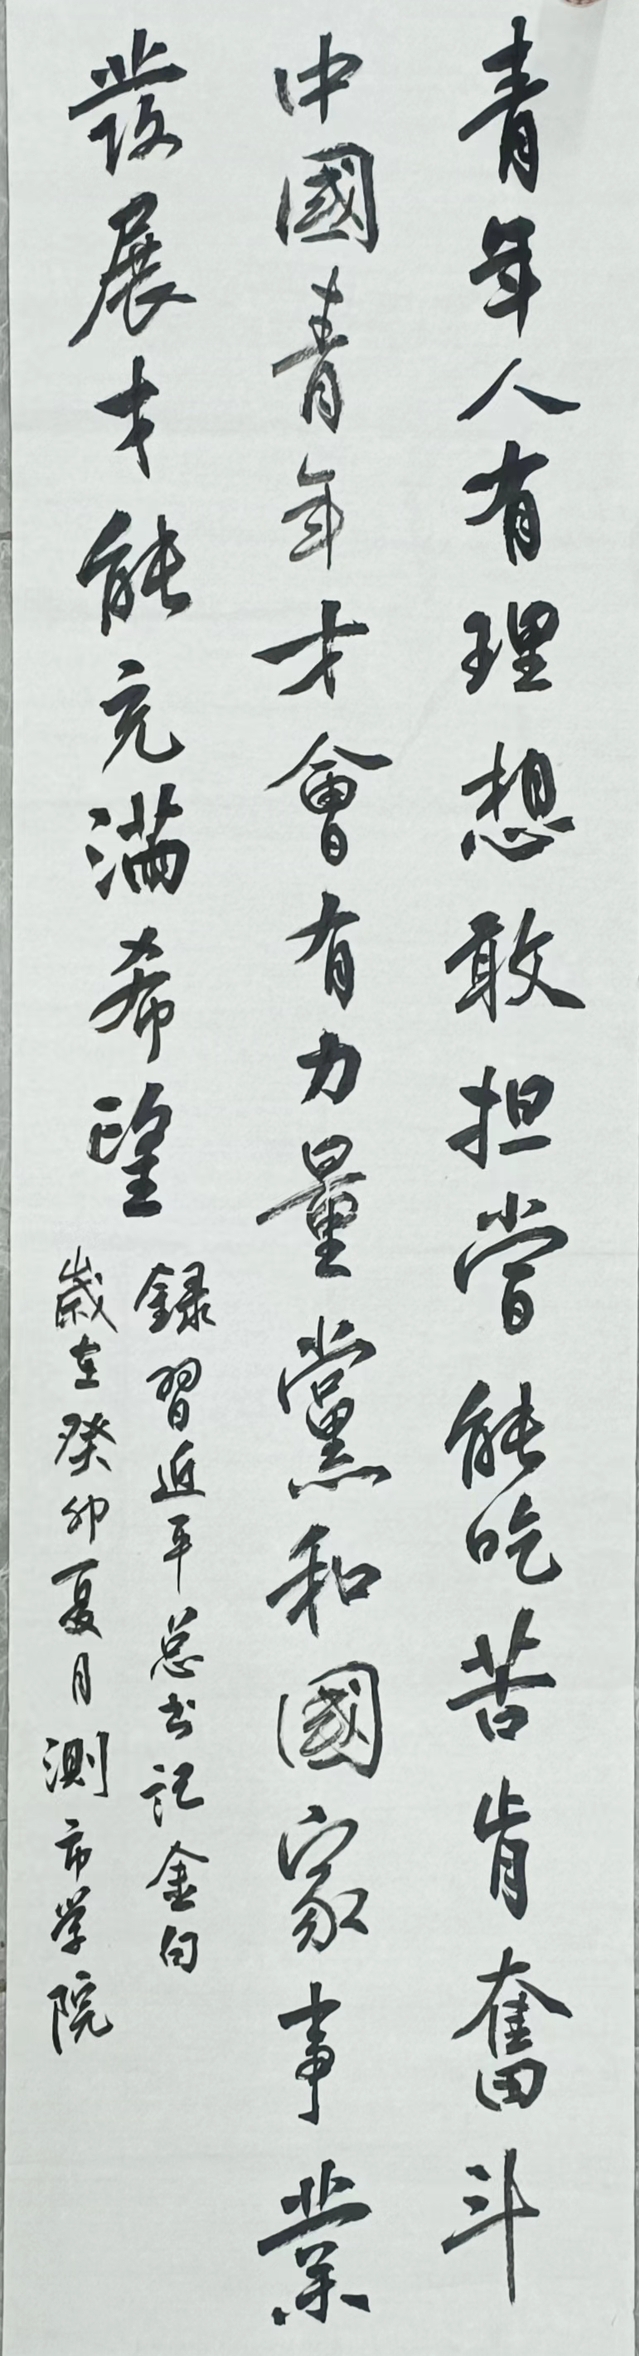 青年人有理想敢担當能吃苦肯奮斗
中國青年才會有力量黨和國家事業
發展才能充滿希望
録習近平总书记金句
歲在癸卯夏月測市学院